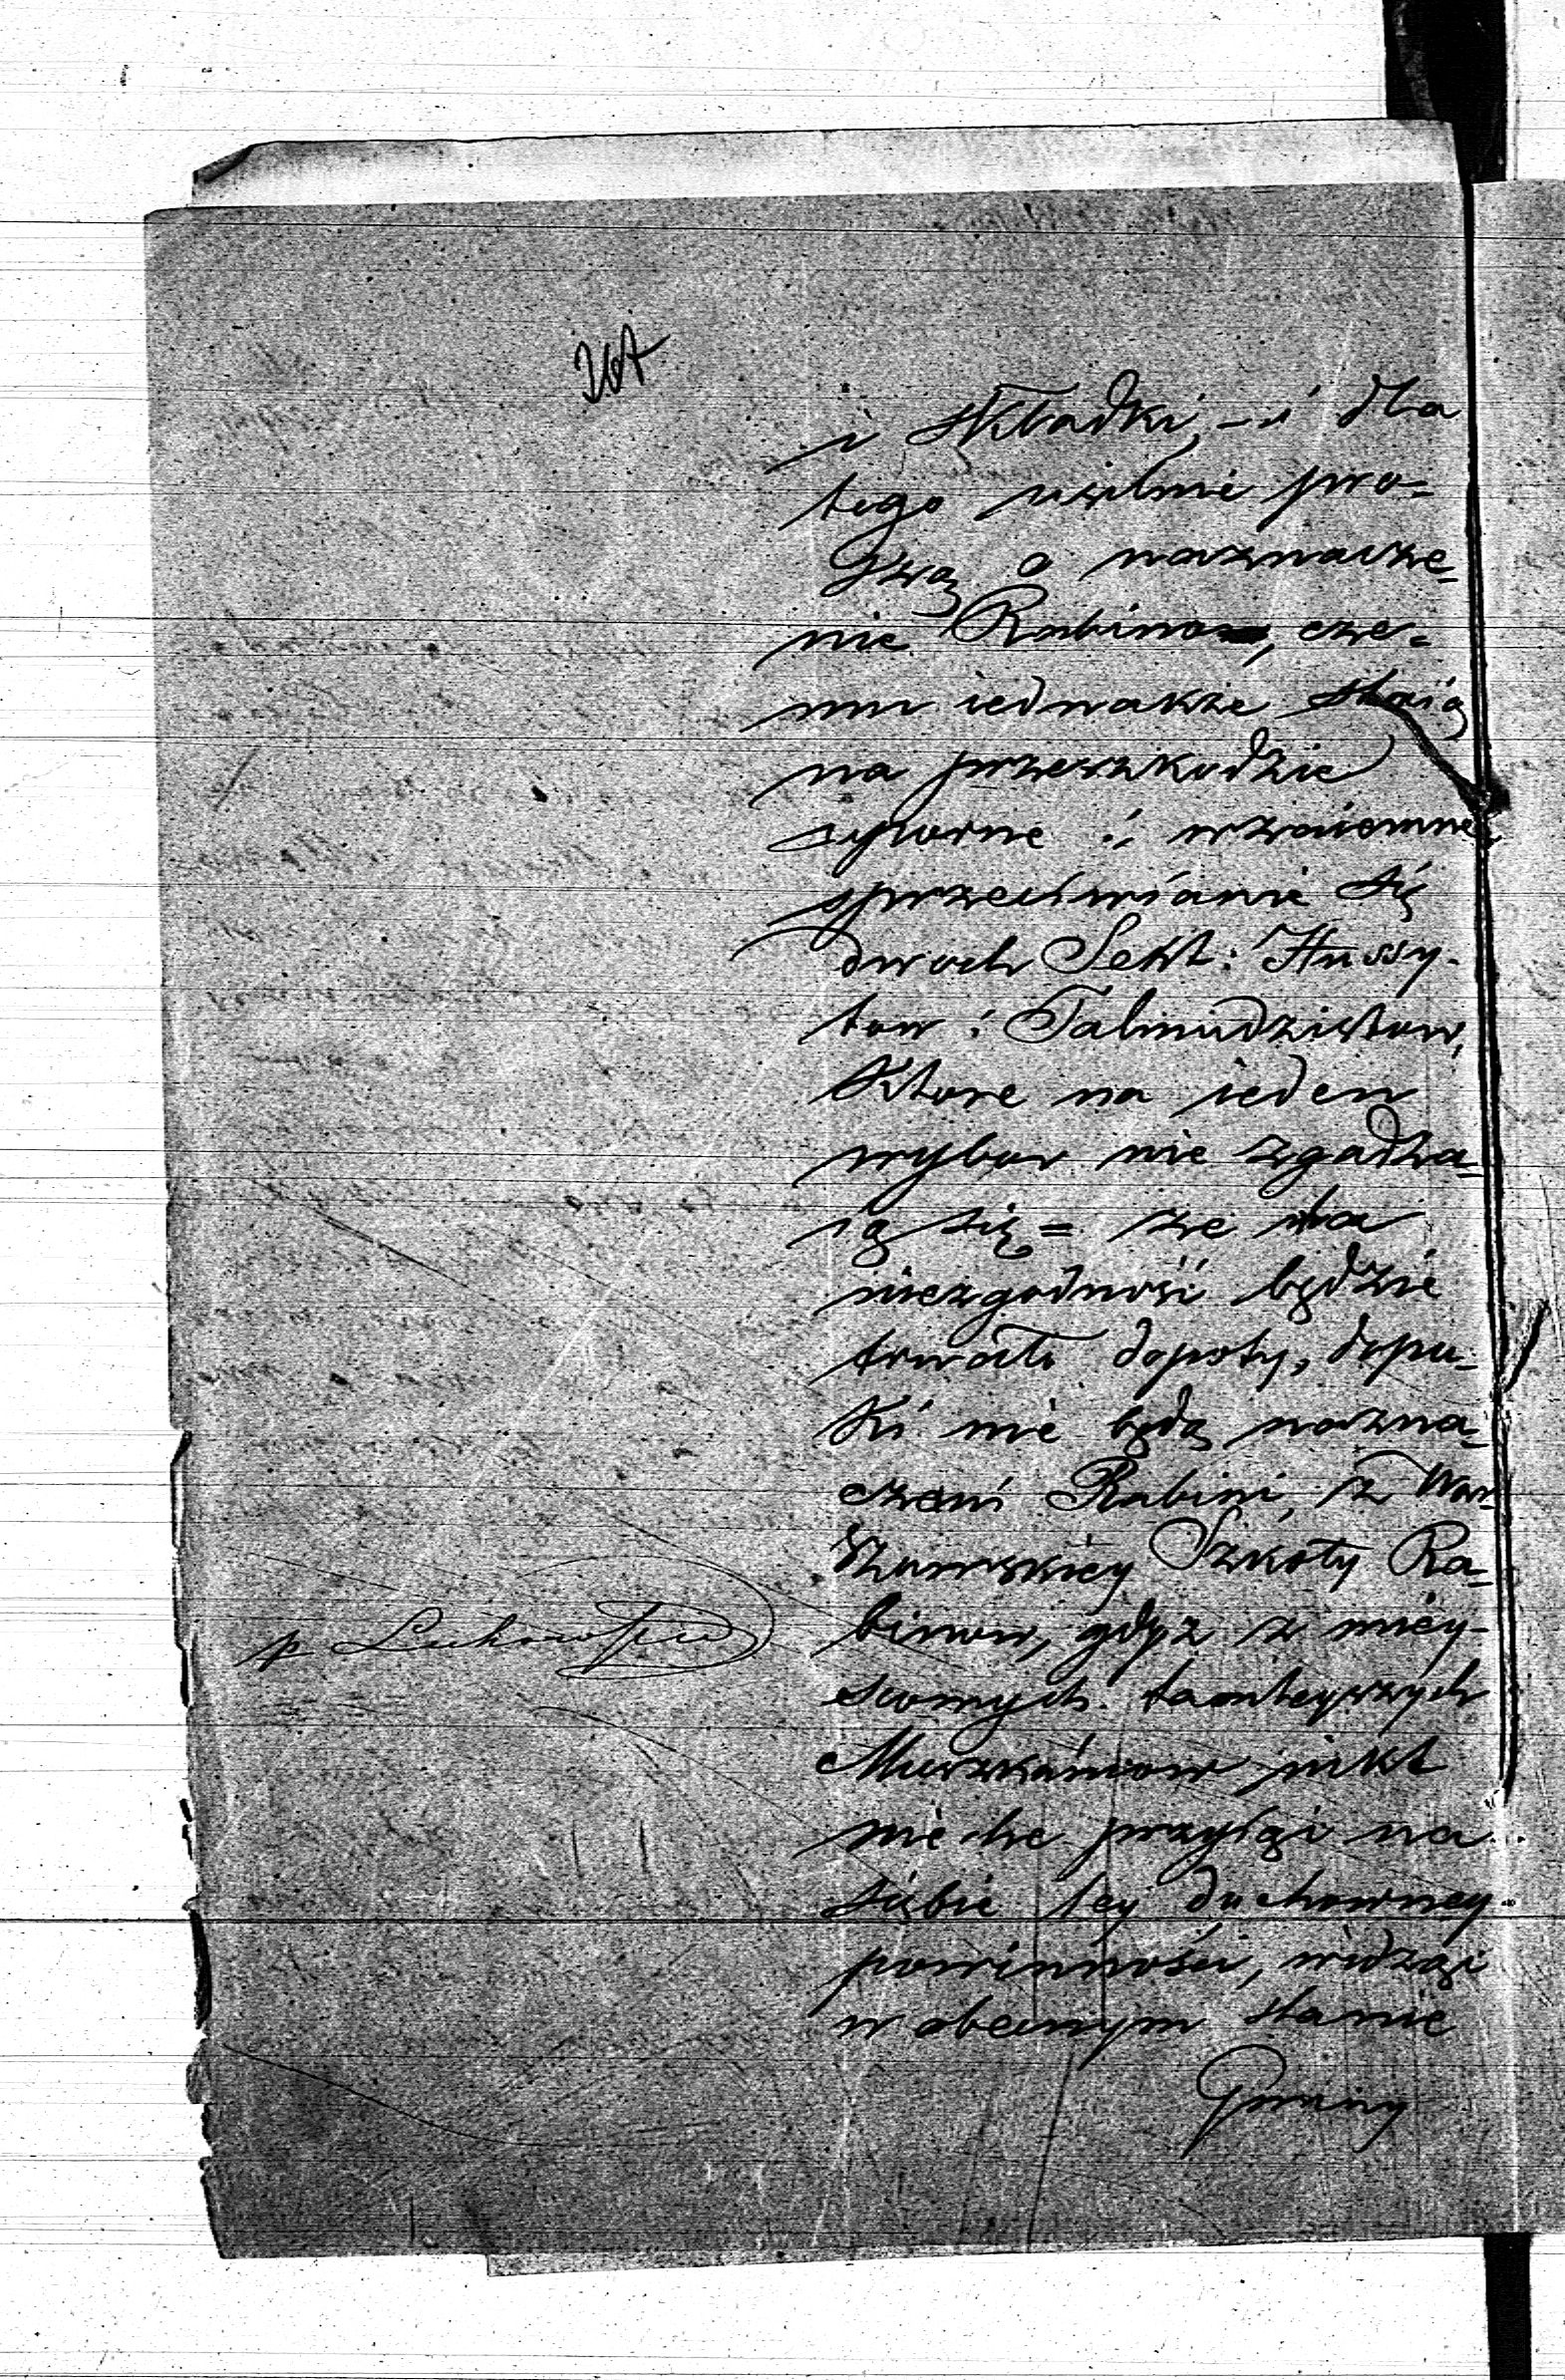 267
i składki, - i dla
tego usilnie pro-
szą o naznacze-
nie Rabina, cze-
mu iednakże stoią
na przeszkodzie
uporne i wzaiemne
sprzeciwianie się
dwoch Sekt: Hussy-
tow i Talmudzistow,
ktore na ieden
wybor nie zgadza-
ią się = że ta
niezgodność będzie
trwała dopoty, dopu-
ki nie będą nazna-
czeni Rabini z War-
szawskiey Szkoły Ra-
binow, gdyż z miey-
scowych tamteyszych
Mieszkańcow nikt
nie chce przyiąć na
siebie tey duchowney
powinności, widząc
w obecnym stanie
Gminy